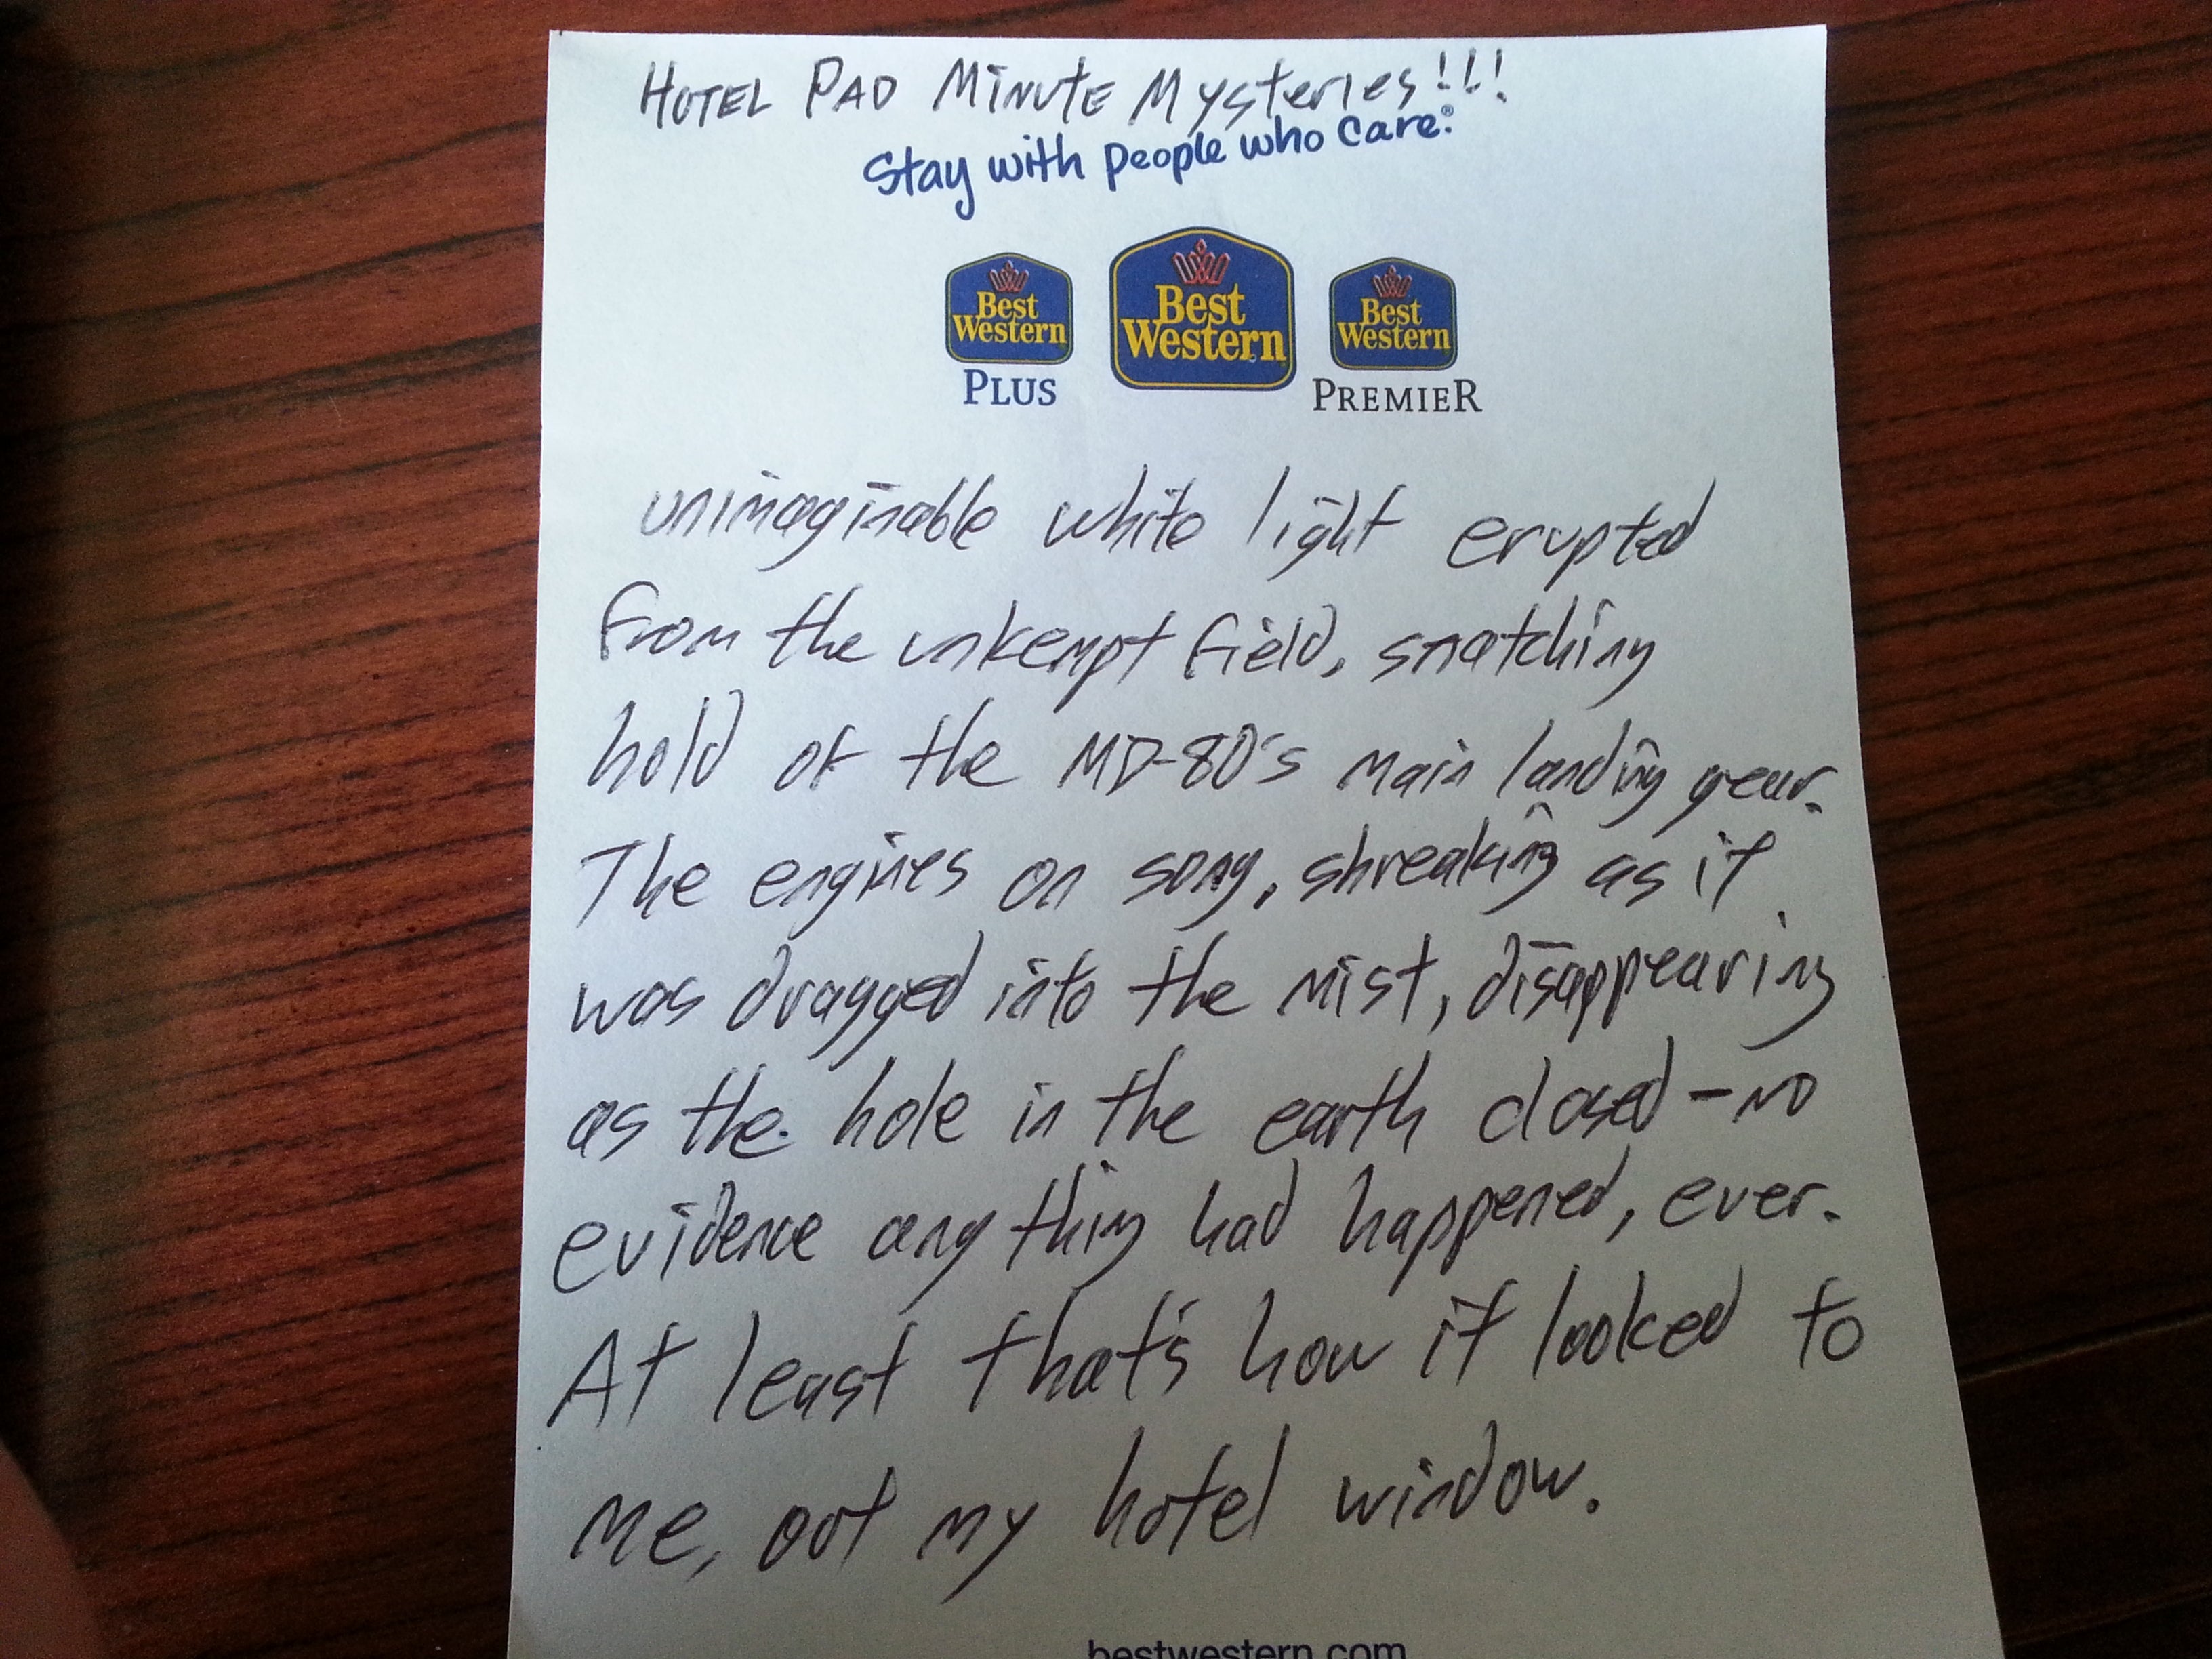 HOTEL PAD MINUTE MYSTERIES!!!
Stay with people who care.®
Best Western PLUS
Best Western
Best Western PREMIER
unimaginable white light erupted
from the unkempt field, snatching
hold of the MD-80's main landing gear.
The engines on song, shreaking as it
was dragged into the mist, disappearing
as the hole in the earth closed - no
evidence anything had happened, ever.
At least that's how it looked to
me, out my hotel window.
bestwestern.com